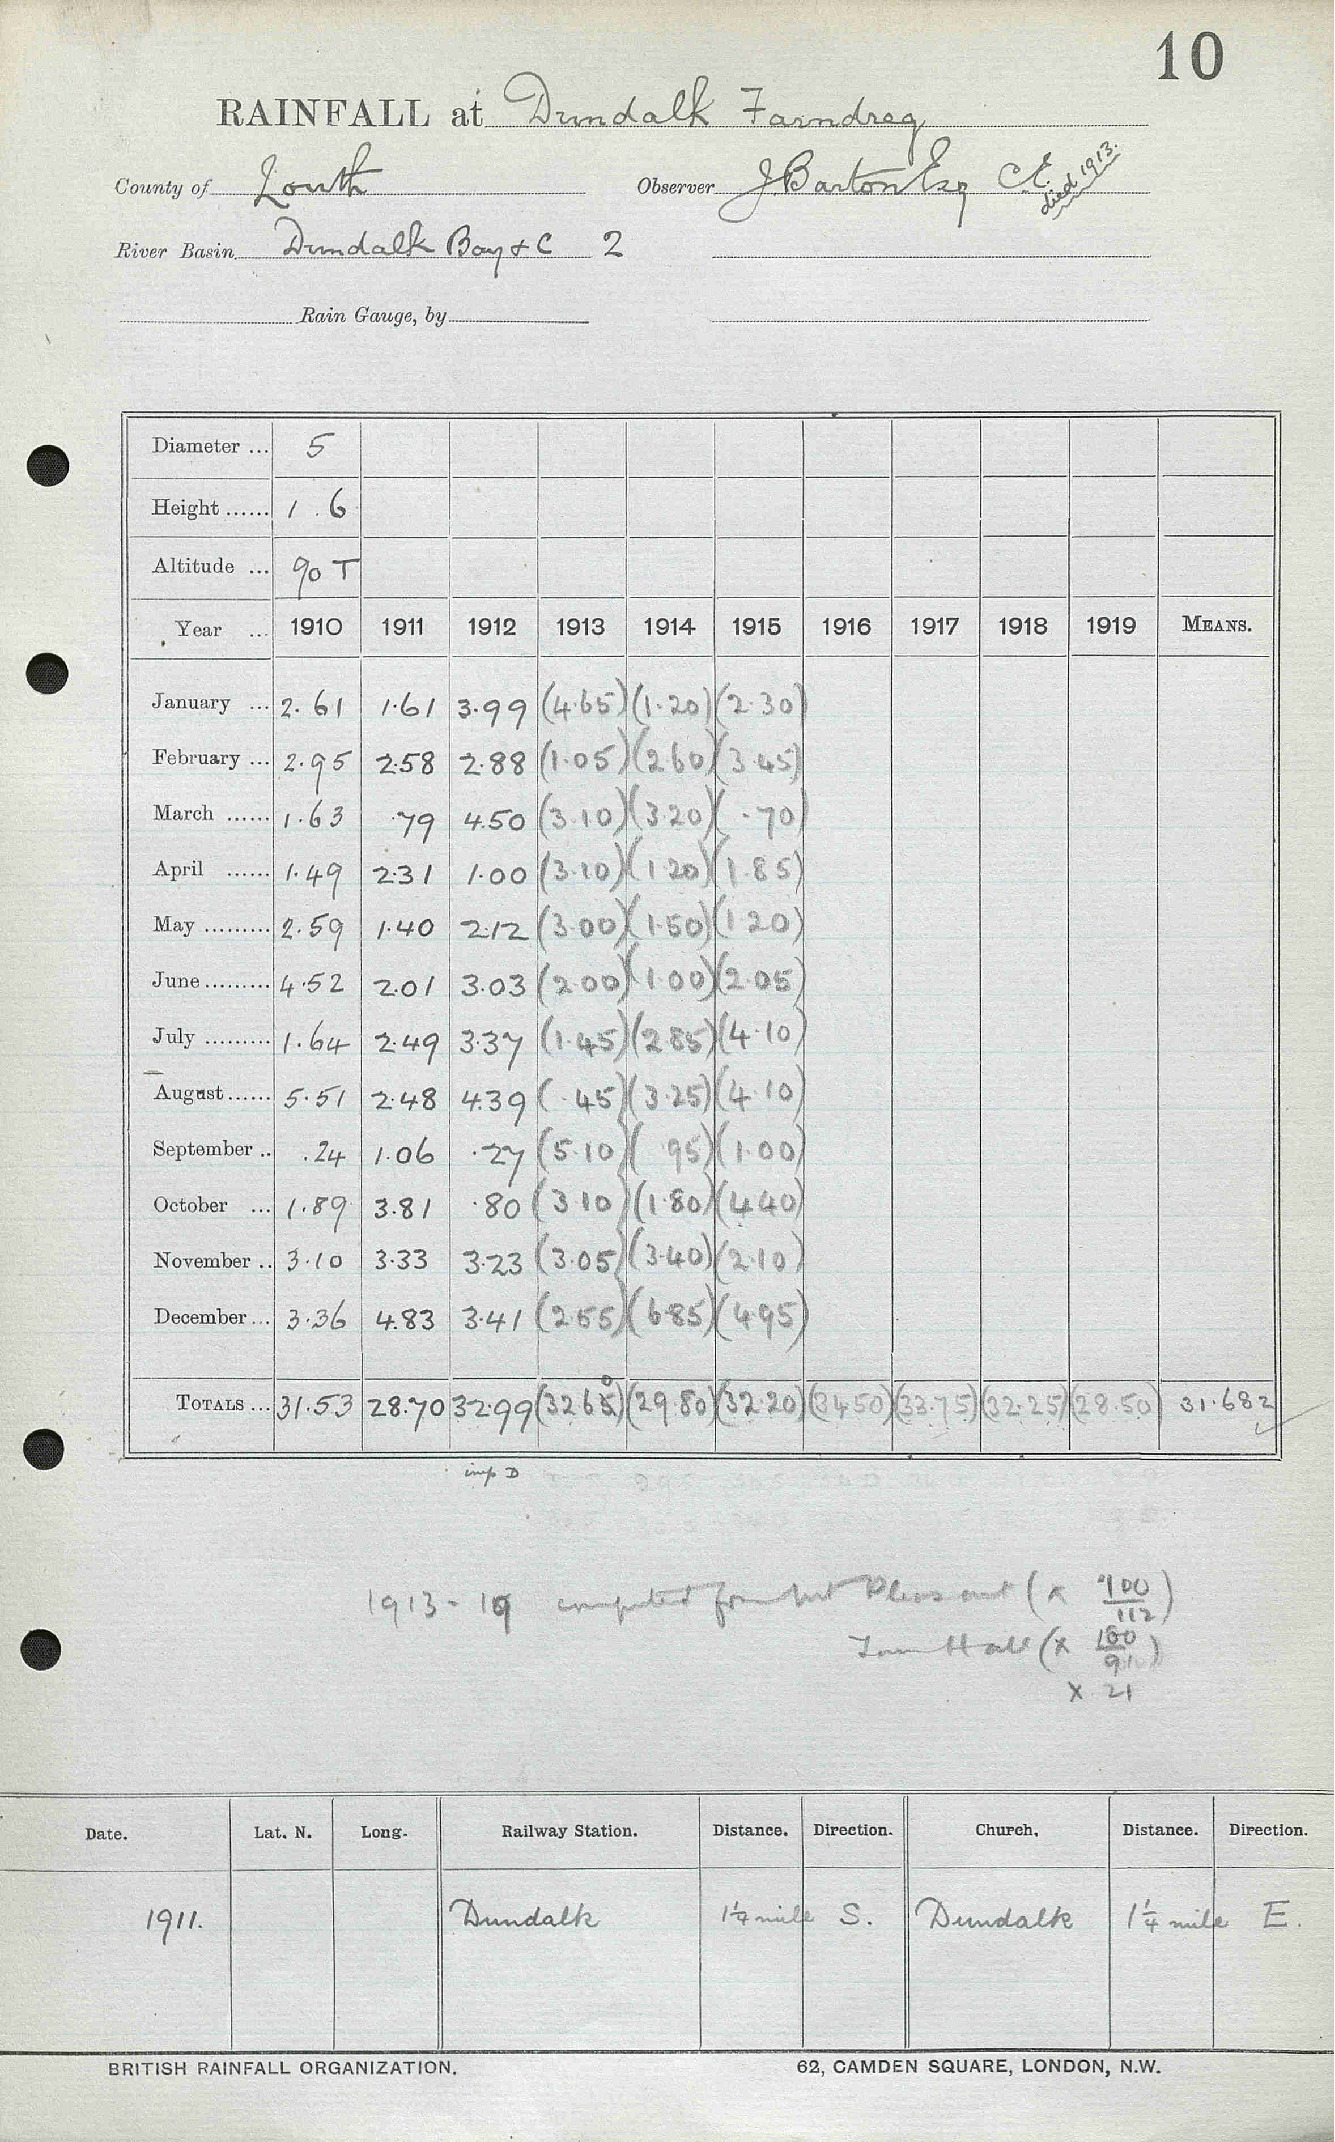 10
RAINFALL at Dundalk Farndreg
County of Louth Observer J Barton Esq C.E. died 1913.
River Basin Dundalk Bay & C 2
Rain Gauge, by
Diameter ... 5
Height ...... 1 . 6
Altitude ... 90 T
Year ... 1910 1911 1912 1913 1914 1915 1916 1917 1918 1919 MEANS.
January ... 2.61 1.61 3.99 (4.65) (1.20) (2.30)
February ... 2.95 2.58 2.88 (1.05) (2.60) (3.45)
March ...... 1.63 .79 4.50 (3.10) (3.20) (.70)
April ...... 1.49 2.31 1.00 (3.10) (1.20) (1.85)
May ......... 2.59 1.40 2.12 (3.00) (1.50) (1.20)
June ......... 4.52 2.01 3.03 (2.00) (1.00) (2.05)
July ......... 1.64 2.49 3.37 (1.45) (2.85) (4.10)
August ...... 5.51 2.48 4.39 (.45) (3.25) (4.10)
September .. .24 1.06 .27 (5.10) (.95) (1.00)
October ... 1.89 3.81 .80 (3.10) (1.80) (4.40)
November .. 3.10 3.33 3.23 (3.05) (3.40) (2.10)
December ... 3.36 4.83 3.41 (2.55) (6.85) (4.95)
TOTALS ... 31.53 28.70 32.99 (32.60) (29.80) (32.20) (34.50) (33.75) (32.25) (28.50) 31.682
imp D
1913-19 computed from Mt Pleasant (x 100/112)
Town Hall (x 100/91)
x 21
Date. Lat. N. Long. Railway Station. Distance. Direction. Church. Distance. Direction.
1911. Dundalk 1¼ mile S. Dundalk 1¼ mile E.
BRITISH RAINFALL ORGANIZATION. 62, CAMDEN SQUARE, LONDON, N.W.